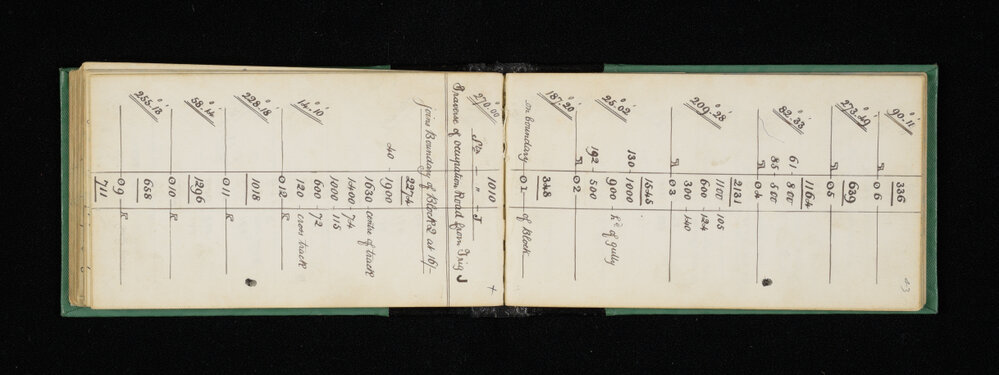 23
90°.11' 336
R 06
273°.49' 639
R 05
82°.33' 1164
61 - 800
85 - 500
R 04
2131
1100 - 105
209°.28' 600 - 124
300 - 140
R 03
1545
130 - 1000
25°.02' 900 - of gully
192 - 500
R 02
187°.20' 348
on boundary 01 of Block
270°.00' 1010 x
Stn — " — J
Traverse of occupation Road from Trig J
joins Boundary of Block 2 at
2274
40 1900
1630 centre of track
1400 - 74
1000 - 115
14°.10' 600 - 72
120 - cross track
012 R
228°.18' 1018
011 R
58°.14' 1296
010 R
255°.13' 658
09 R
711